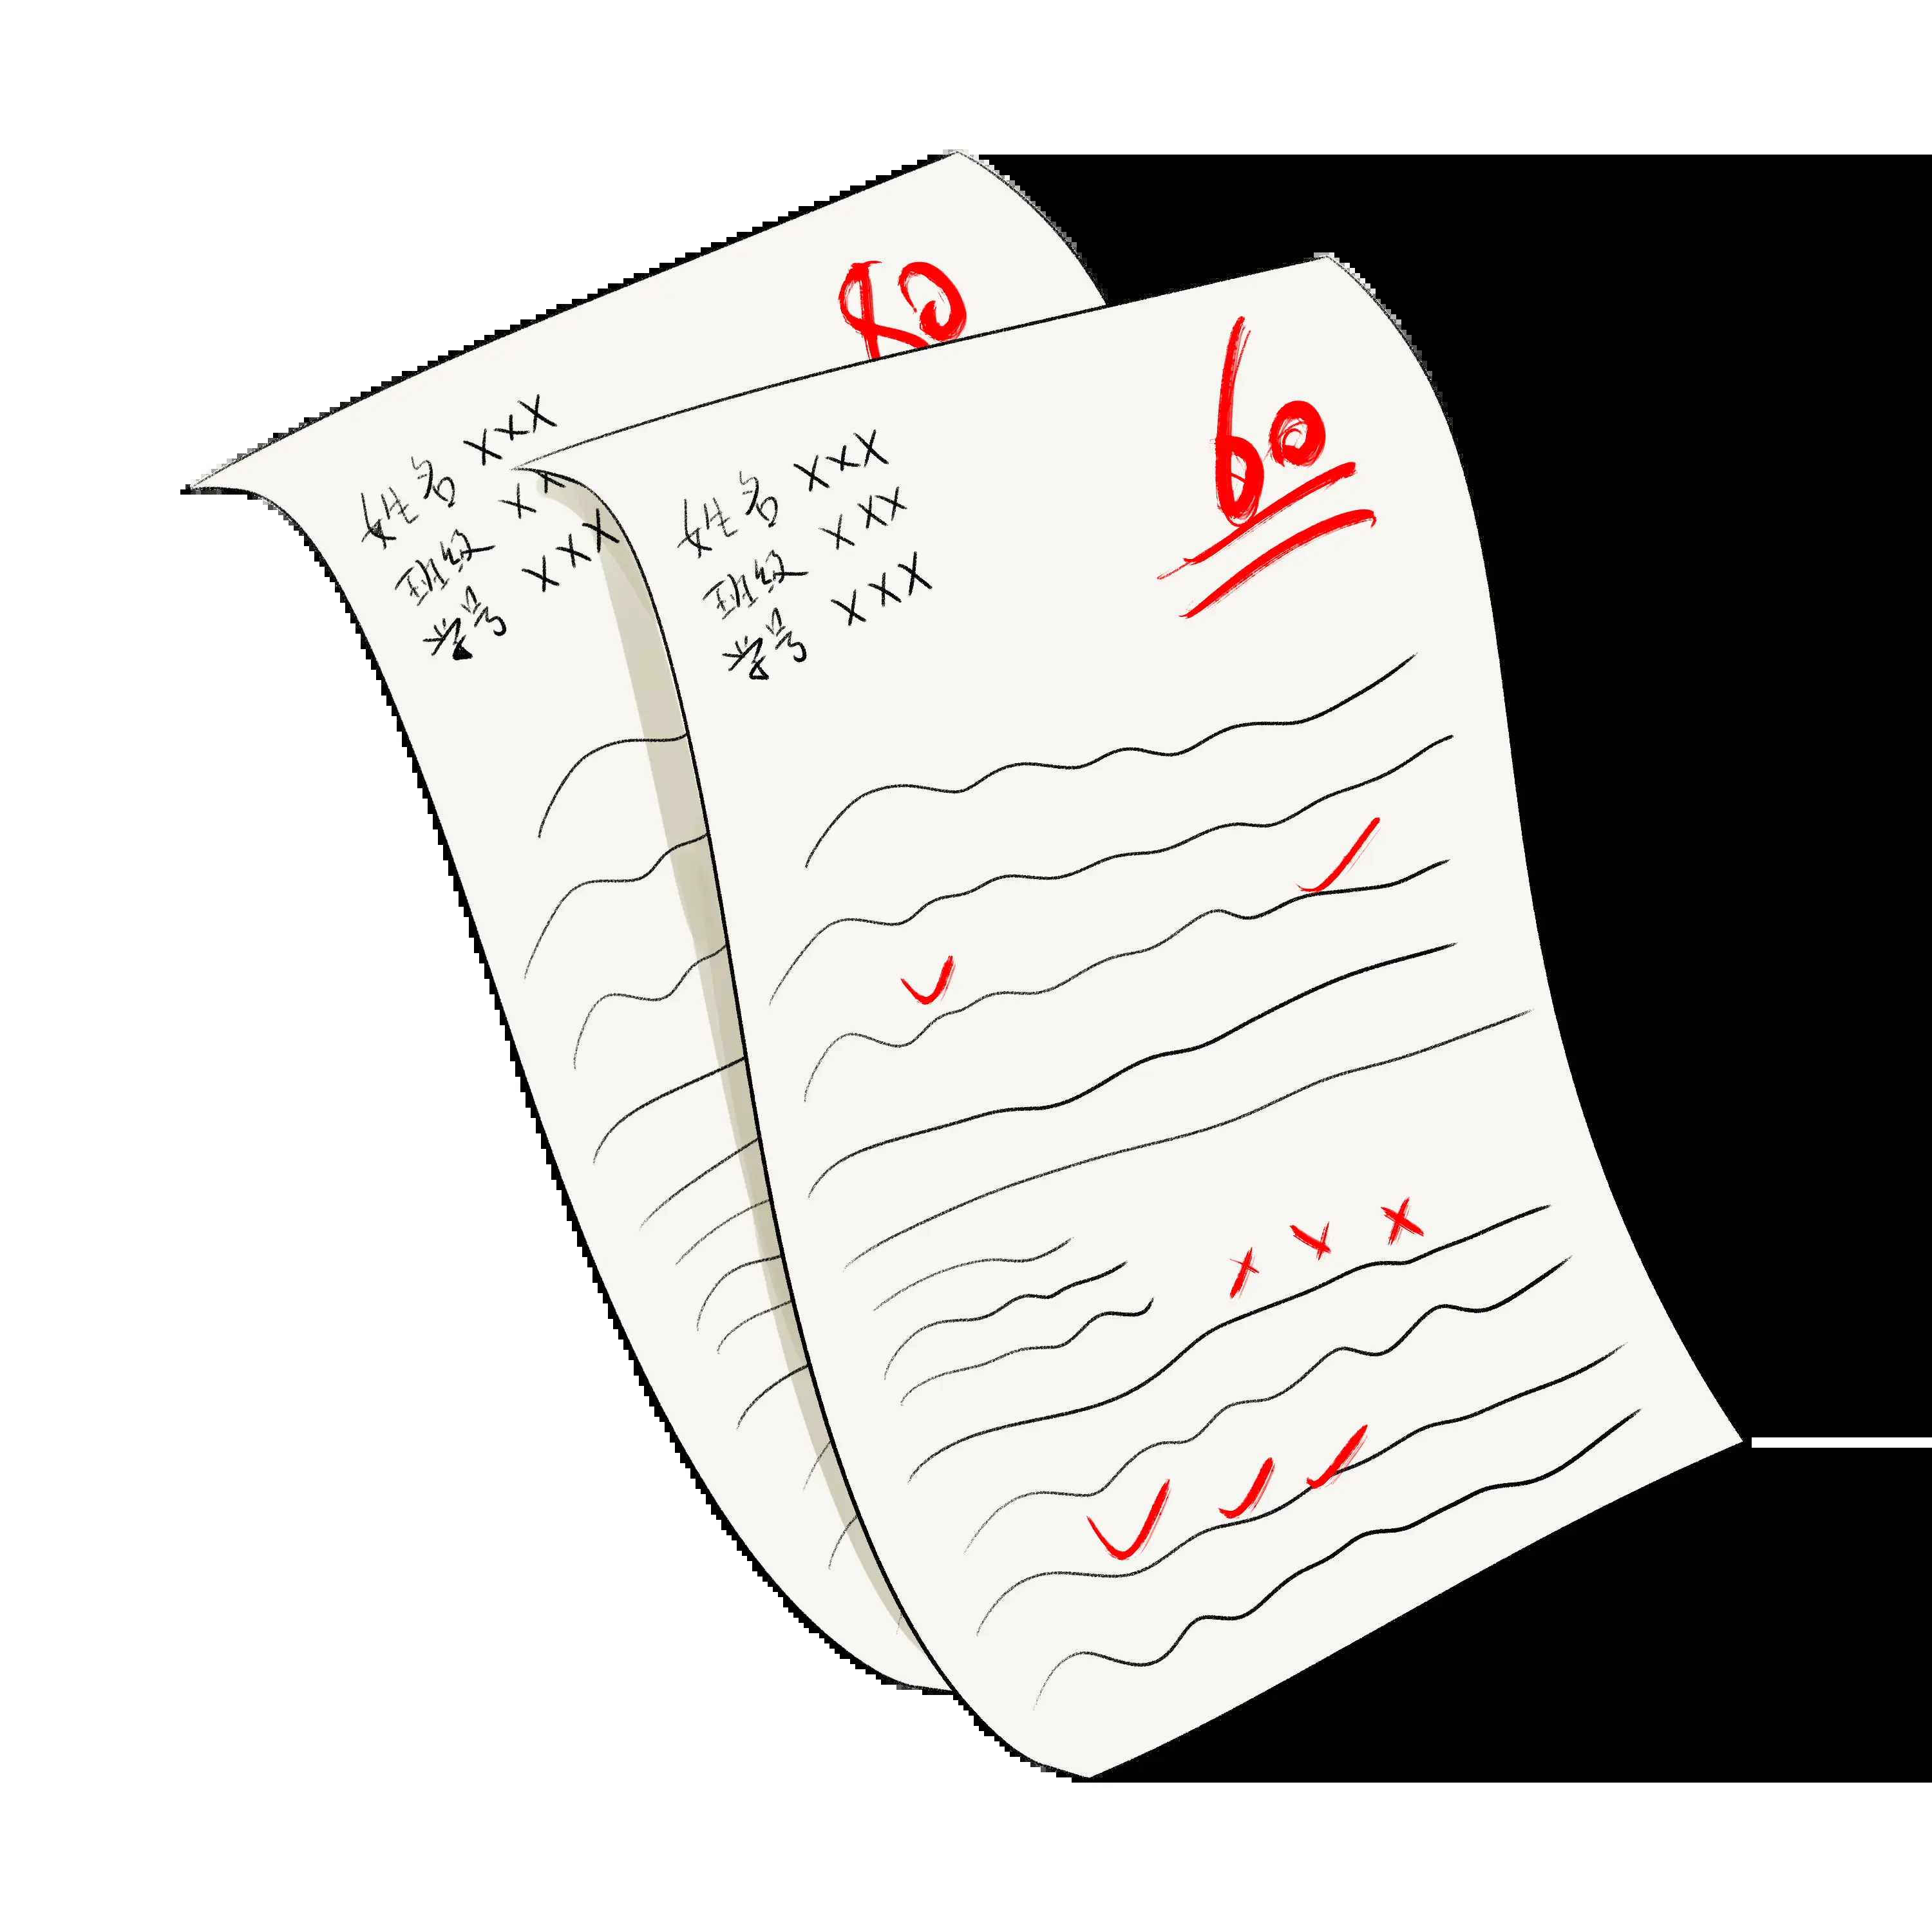 80
姓名 XXX
班级 XX
学号 XXX
60
姓名 XXX
班级 XXX
学号 XXX